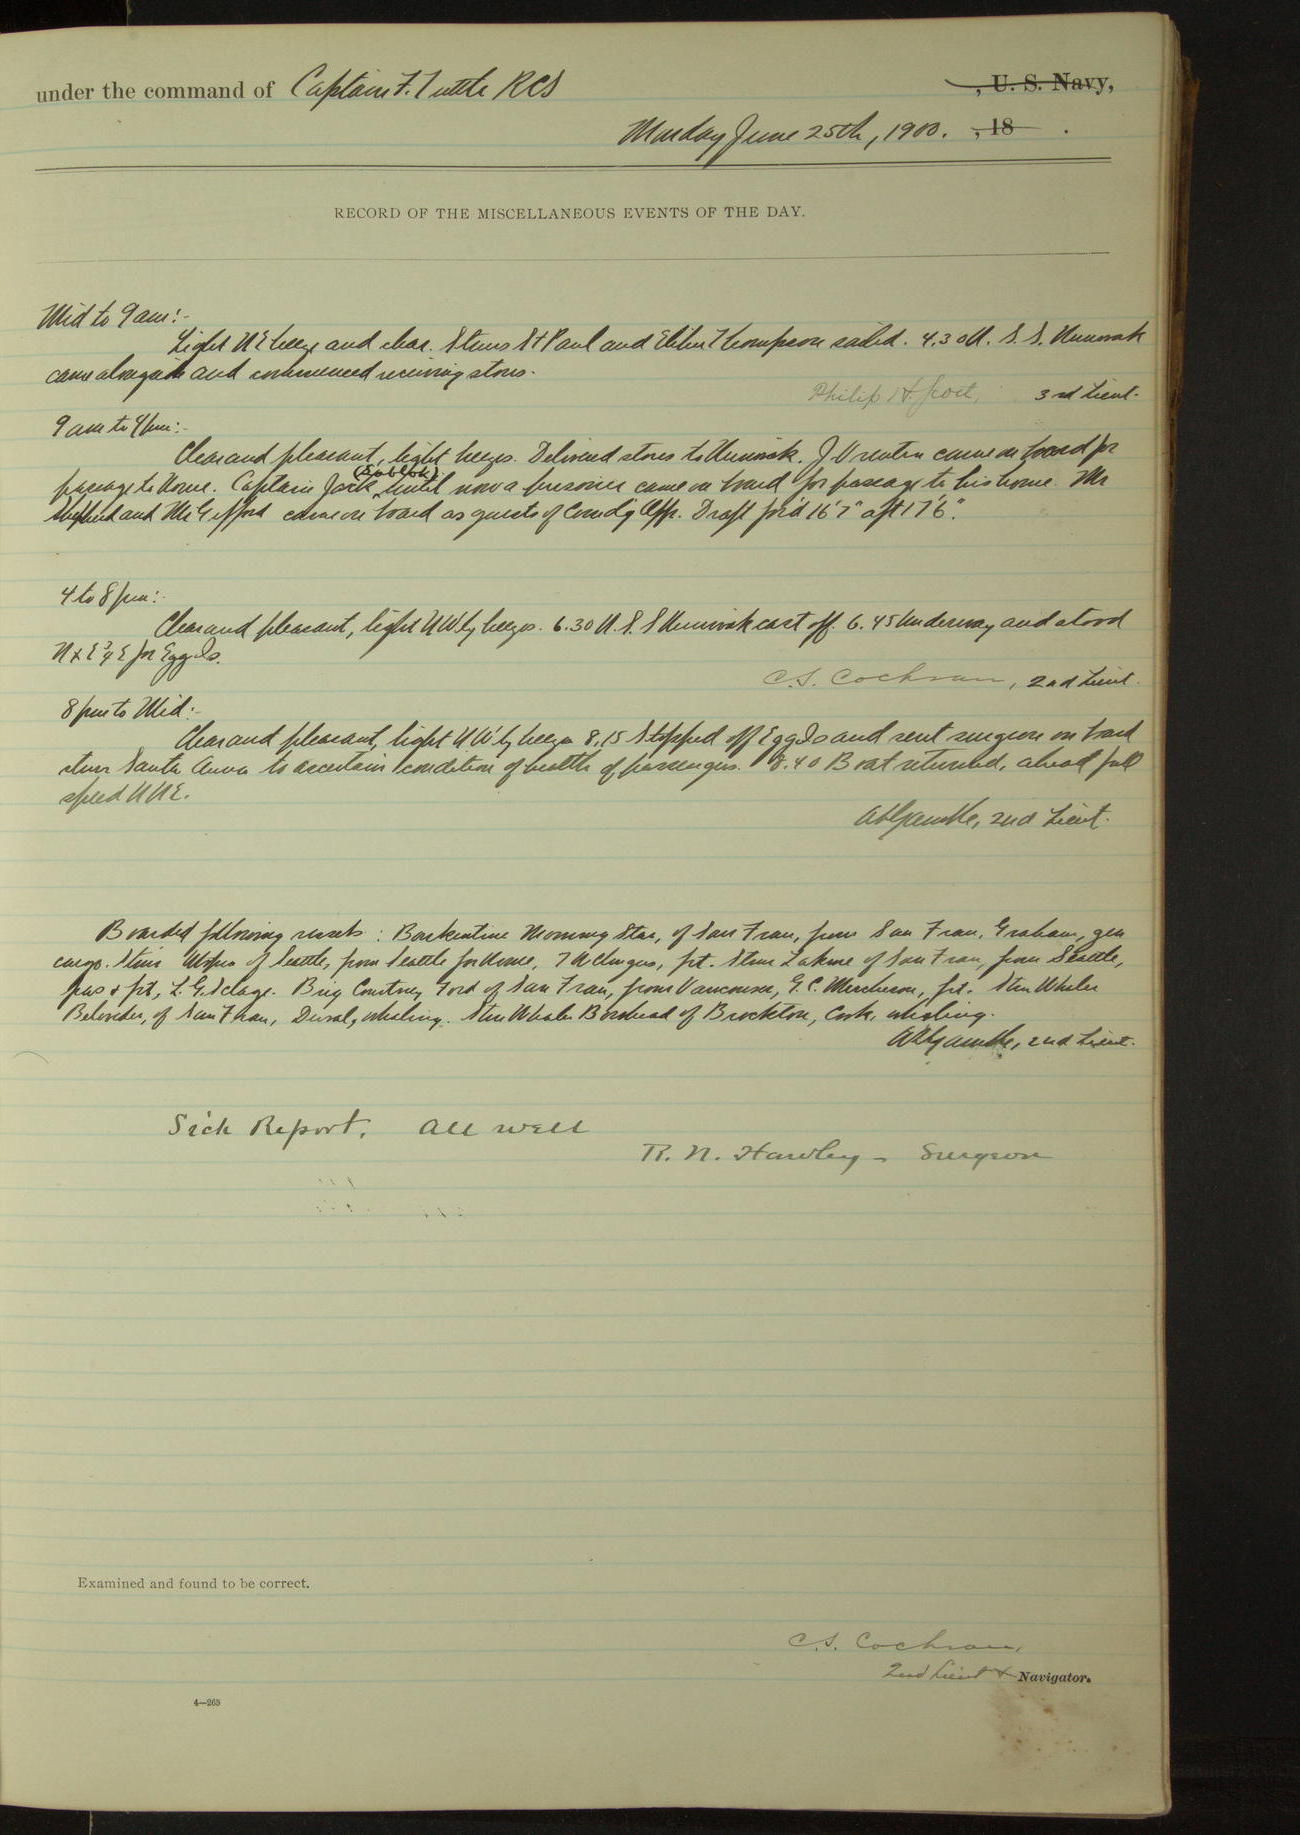 under the command of Captain F. Tuttle RCS , U. S. Navy,
Monday June 25th, 1900. , 18 .
RECORD OF THE MISCELLANEOUS EVENTS OF THE DAY.
Mid to 9 am:-
Light NE breeze and clear. Stmrs St Paul and Elihu Thompson sailed. 4.30 U. S. S. Nunivak
came alongside and commenced receiving stores.
Philip H. Scott, 3rd Lieut.
9 am to 4 pm:-
Clear and pleasant, light breezes. Delivered stores to Nunivak. came on board for
(Sablok)
passage to Nome. Captain Jack until now a prisoner came on board for passage to his home. Mr
and Mr Gifford came on board as guests of Comd'g Offr. Draft for'd 16'7" aft 17'6".
4 to 8 pm:-
Clear and pleasant, light NW'ly breezes. 6.30 U. S. S Nunivak cast off. 6.45 Underway and stood
N x E 3/4 E for Egg Is.
C. S. Cochran, 2nd Lieut.
8 pm to Mid:-
Clear and pleasant, light NW'ly breeze 8.15 Stopped off Egg Is and sent surgeon on board
stmr Santa Anna to ascertain condition of health of passengers. 8.40 Boat returned, ahead full
speed NNE.
2nd Lieut.
Boarded following vessels: Barkentine Morning Star, of San Fran, from San Fran, Graham, gen
cargo. Stmr of Seattle, from Seattle for Nome, frt. Stmr Lakme of San Fran, from Seattle,
pas & frt, Brig Courtney Ford of San Fran, from Vancouver, G. C. frt. Stm Whaler
Belvider, of San Fran, whaling. Stm Whaler Bowhead of Brockton, Cook, whaling.
2nd Lieut.
Sick Report. All well
R. N. Hawley - Surgeon
Examined and found to be correct.
C. S. Cochran,
2nd Lieut & Navigator.
4—265